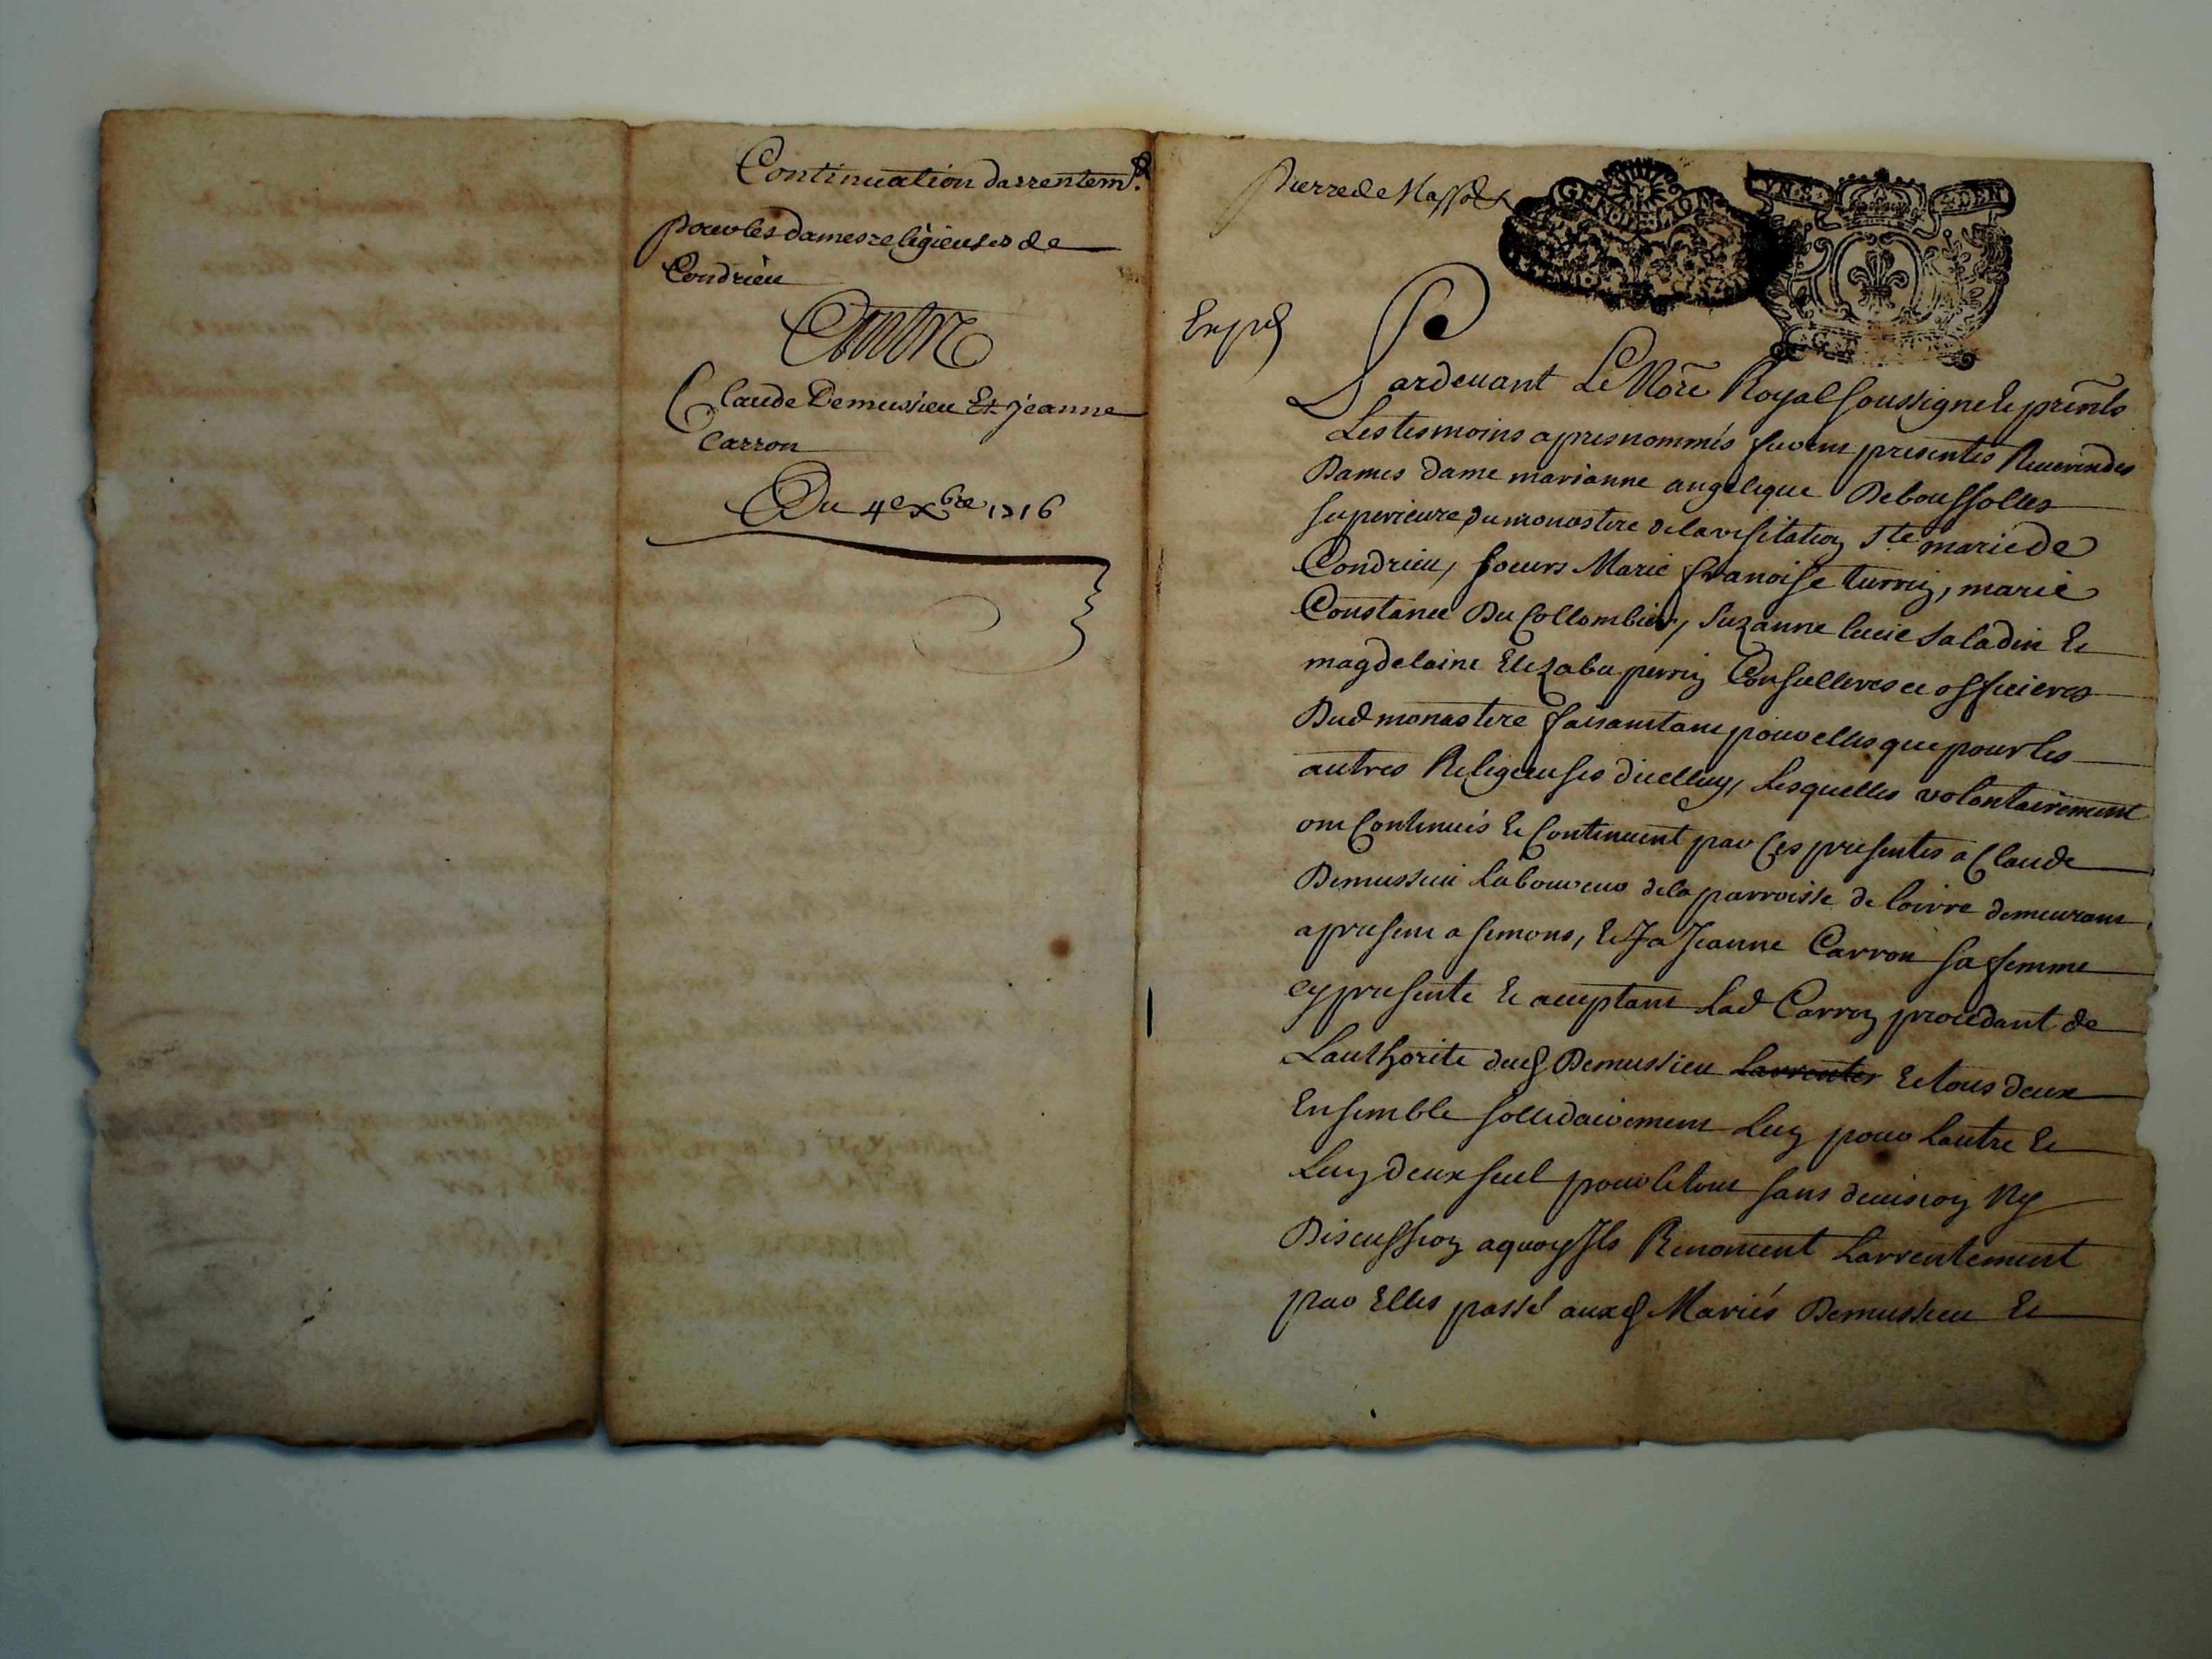 Continuation darrentem.t
pour les dames religieuses de
Condrieu
Contre
Claude Demussieu Et jeanne
Carron
Du 4e xbre 1716
Pierre de
GENERALITE LYON
Expd
Pardevant Le Nore Royal soussigne Et presents
Les tesmoins apres nommés furent presentes Reverendes
Dames dame marianne angelique Deboussolles
superieure du monastere de la visitation Ste marie de
Condrieu, soeurs Marie franoise turrin, marie
Constance Du Collombier, Suzanne lucie Saladin Et
magdelaine Elezabet perrin Conseilleres et officieres
Dud monastere faisant tant pour elles que pour les
autres Religieuses dicelluy, Lesquelles volontairement
ont Continués Et Continuent par Ces presentes a Claude
Demussieu Laboureur de la parroisse de loirre demeurant
a present a simons, Et a Jeanne Carron sa femme
cy presente Et acceptant Lad Carron procedant de
Lauthorite dud Demussieu Larrenter Et tous deux
Ensemble sollidairement Lun pour Lautre Et
Lun deux seul pour le tout sans division Ny
Discussion a quoy Ils Renoncent Larrentement
par Elles passé auxd Mariés Demussieu Et